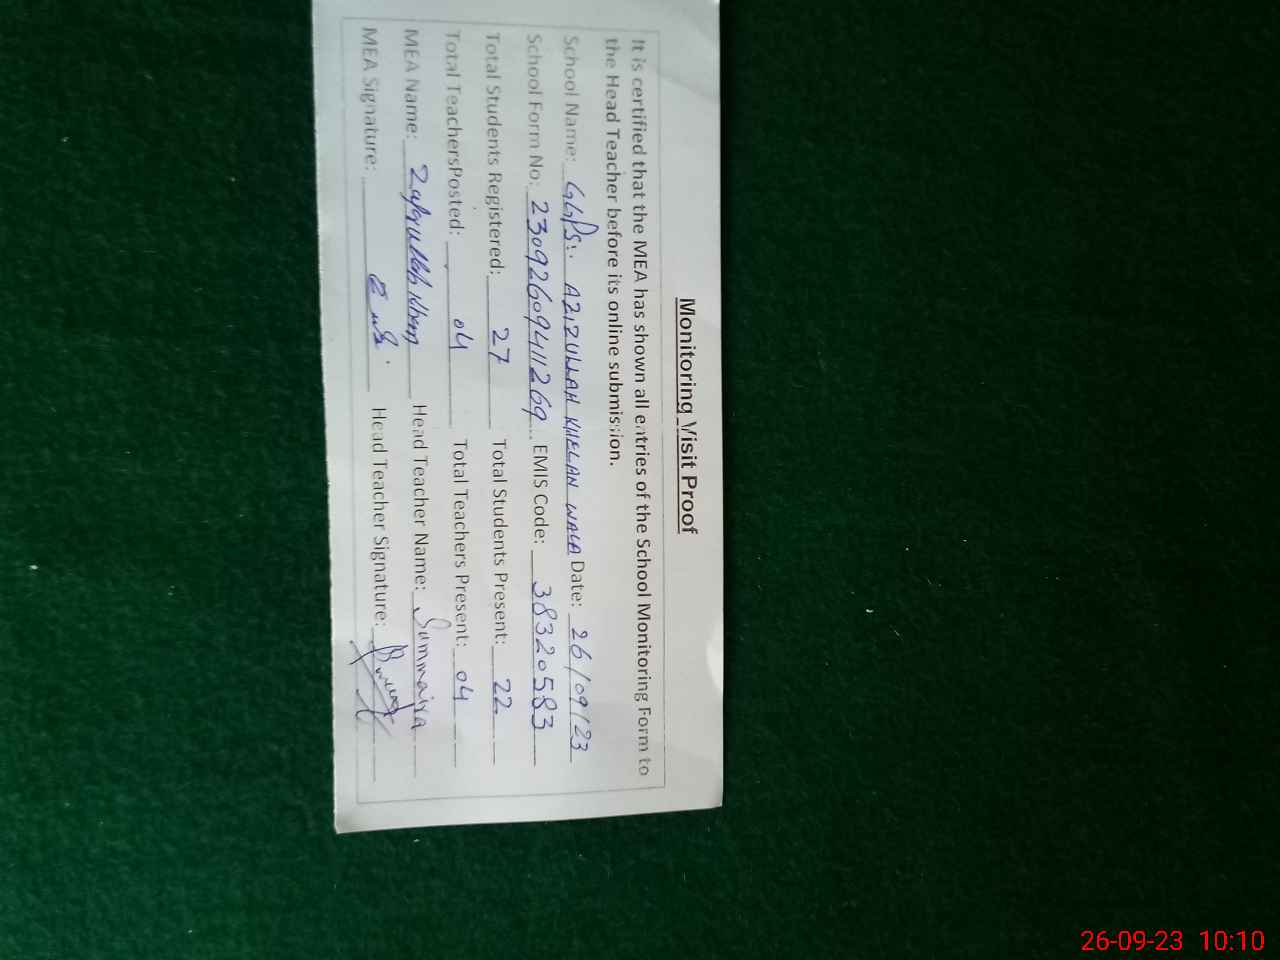 Monitoring Visit Proof
It is certified that the MEA has shown all entries of the School Monitoring Form to
the Head Teacher before its online submission.
School Name: GGPS: AZIZULLAH KHELAN WALA Date: 26/09/23
School Form No: 23092609411269 EMIS Code: 38320583
Total Students Registered: 27 Total Students Present: 22
Total TeachersPosted: 04 Total Teachers Present: 04
MEA Name: Zafrullah Khan Head Teacher Name: Summaiya
MEA Signature: Head Teacher Signature:
26-09-23 10:10